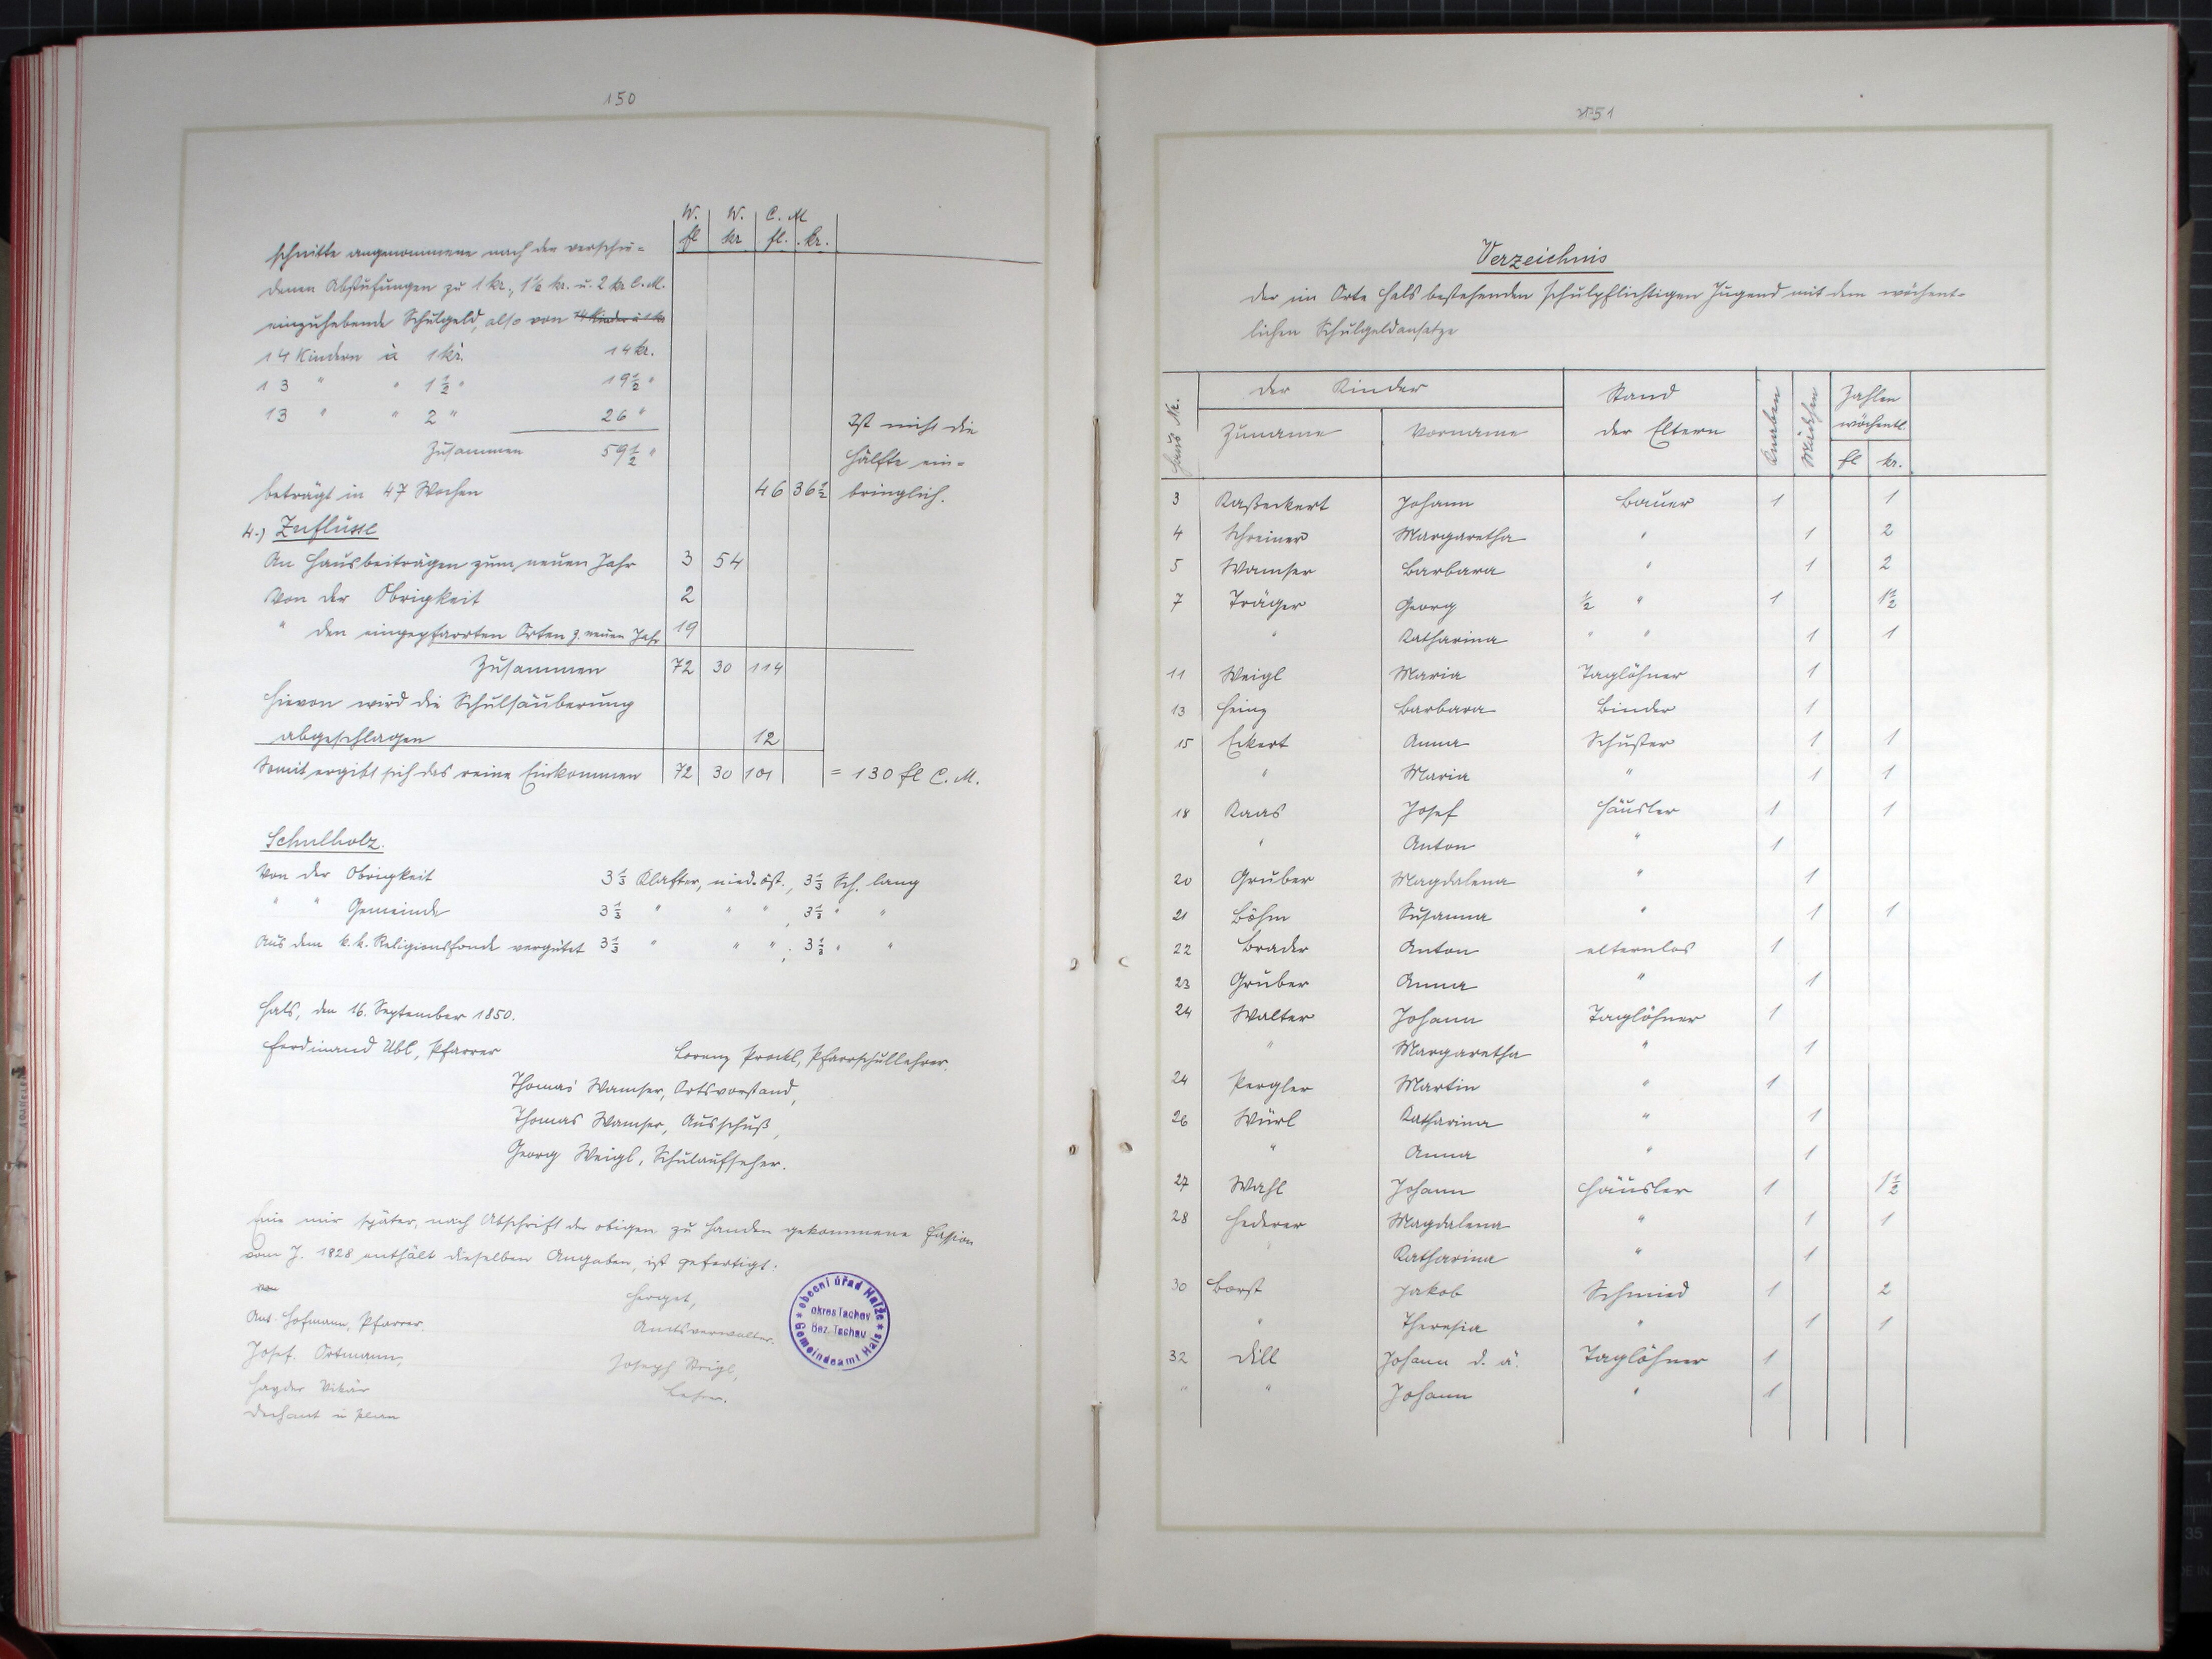 150
W. W. C. M
fl kr fl. kr.
schnitte angenommene nach den verschie=
denen Abstufungen zu 1 kr., 1½ kr. u. 2 kr C.M.
einzuhebende Schulgeld, also von 14 Kinder à 1 kr
14 Kindern à 1 kr. 14 kr.
13 " " 1½ " 19½ "
13 " " 2 " 26 "
Zusammen 59½ "
Ist nicht die
Hälfte ein=
beträgt in 47 Wochen 46 36½ bringlich.
4.) Zuflüsse
An Hausbeiträgen zum neuen Jahr 3 54
Von der Obrigkeit 2
" den eingepfarrten Orten z. neuen Jahr 19
Zusammen 72 30 114
Hievon wird die Schulsäuberung
abgeschlagen 12
Somit ergibt sich das reine Einkommen 72 30 101 = 130 fl C.M.
Schulholz.
Von der Obrigkeit 3⅓ Klafter, nied. öst., 3⅓ Sch. lang
" " Gemeinde 3⅓ " " " , 3⅓ " "
Aus dem k.k. Religionsfonde vergütet 3⅓ " " " ; 3⅓ " "
Hals, den 16. September 1850.
Ferdinand Ubl, Pfarrer
Lorenz Prockl, Pfarrschullehrer.
Thomas Wamser, Ortsvorstand,
Thomas Wamser, Ausschuß,
Georg Weigl, Schulaufseher.
Eine mir später, nach Abschrift der obigen zu Handen gekommene Fassion
vom J. 1828 enthält dieselben Angaben, ist gefertigt:
von
Herget,
Ant. Hofmann, Pfarrer.
Amtsverwalter.
Josef Ortmann,
Joseph Weigl,
Hayder Vikär
Lehrer.
Dechant in Plan
obecní úřad Halže
okres Tachov
Bez. Tachau
Gemeindeamt Hals
151
Verzeichnis
der im Orte Hals bestehenden schulpflichtigen Jugend mit dem wöchent=
lichen Schulgeldansatze
Haus Nr. der Kinder Stand der Eltern Knaben Mädchen Zahlen wöchentl.
Zuname Vorname fl kr.
3 Kaßeckert Johann Bauer 1 1
4 Schreiner Margaretha " 1 2
5 Wamser Barbara " 1 2
7 Träger Georg ½ " 1 1½
" Katharina " " 1 1
11 Weigl Maria Taglöhner 1
13 Heinz Barbara Binder 1
15 Eckert Anna Schuster 1 1
" Maria " 1 1
18 Kaas Josef Häusler 1 1
" Anton " 1
20 Gruber Magdalena " 1
21 Böhm Susanna " 1 1
22 Brader Anton elternlos 1
23 Gruber Anna " 1
24 Walter Johann Taglöhner 1
" Margaretha " 1
24 Pergler Martin " 1
26 Würl Katharina " 1
" Anna " 1
27 Wahl Johann Häusler 1 1½
28 Hederer Magdalena " 1 1
" Katharina " 1
30 Borst Jakob Schmied 1 2
" Theresia " 1 1
32 Dill Johann d. ä. Taglöhner 1
" " Johann " 1